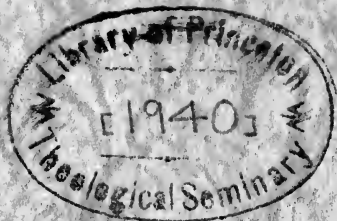 Library of Princeton
[1940]
Theological Seminary